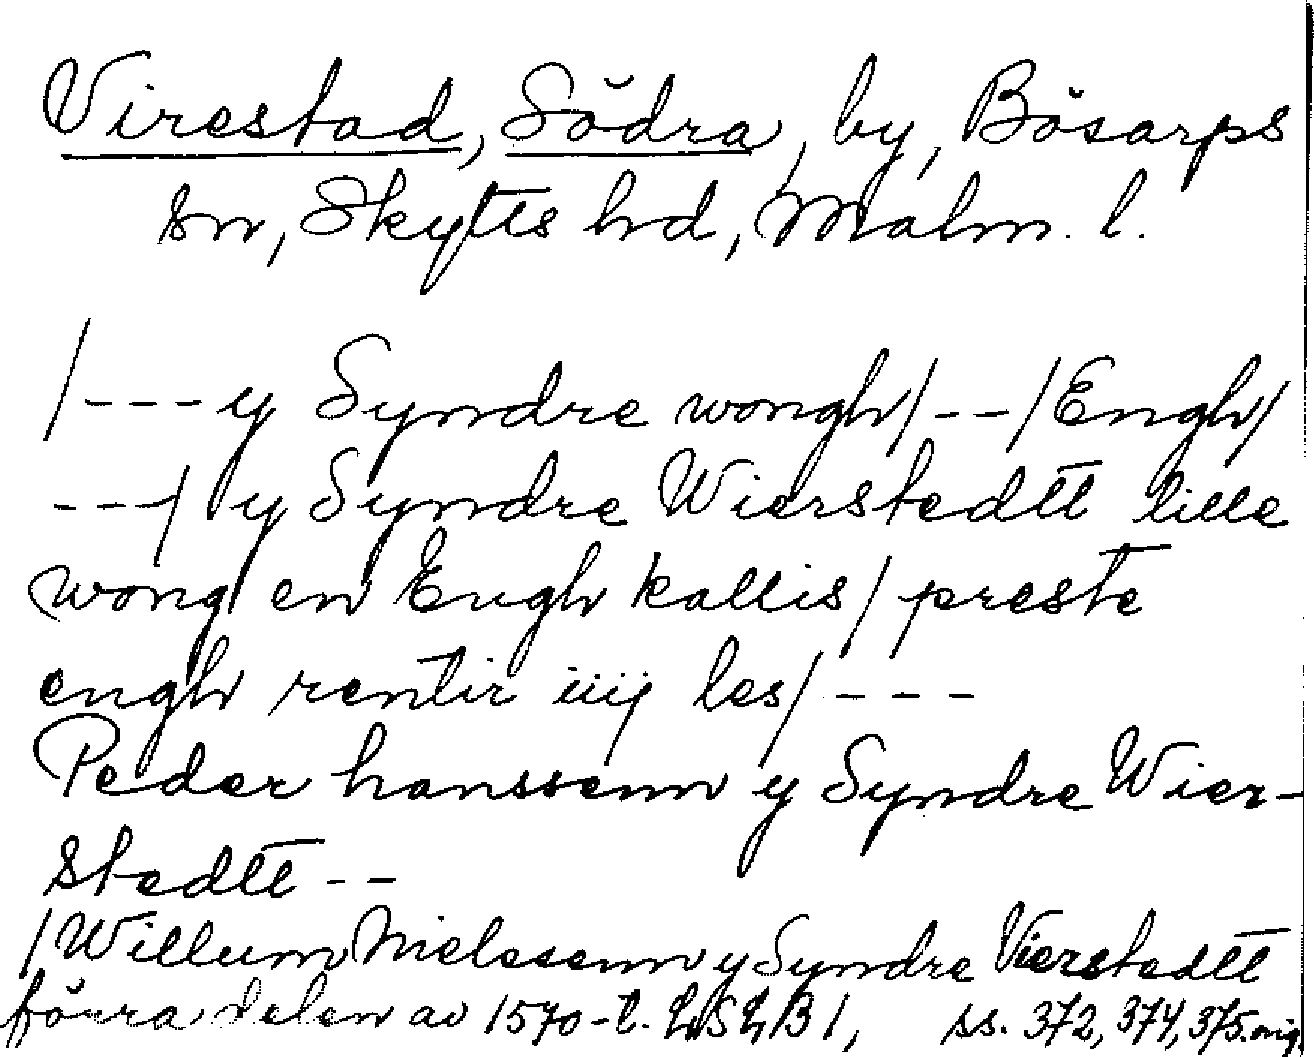 Virestad, Södra, by, Bösarps
sn, Skytts hd, Malm. l.
/---y Syndre wongh/--/Engh/
---/ y Syndre Wierstedtt lille
wong en Engh kallis/ preste
engh rentir iiij les/---
Peder hanssenn y Syndre Wier-
stedtt--
/Willum Nielssenn y Syndre Vierstedtt
förra delen av 1570-t. LSLB 1, ss. 372, 374, 375. orig.